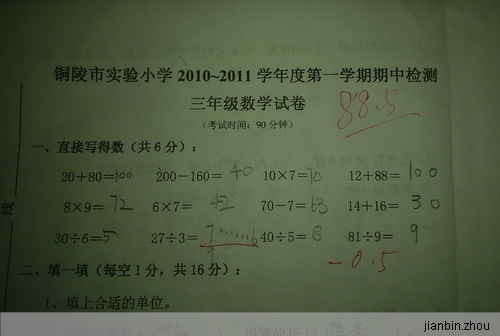 铜陵市实验小学 2010~2011 学年度第一学期期中检测
三年级数学试卷
88.5
(考试时间：90 分钟)
一、直接写得数（共 6 分）：
20＋80＝100 200－160＝40 10×7＝70 12＋88＝100
8×9＝72 6×7＝42 70－7＝63 14＋16＝30
30÷6＝5 27÷3＝ 40÷5＝8 81÷9＝9
9
-0.5
二、填一填（每空 1 分，共 16 分）：
1、填上合适的单位。
线
jianbin.zhou